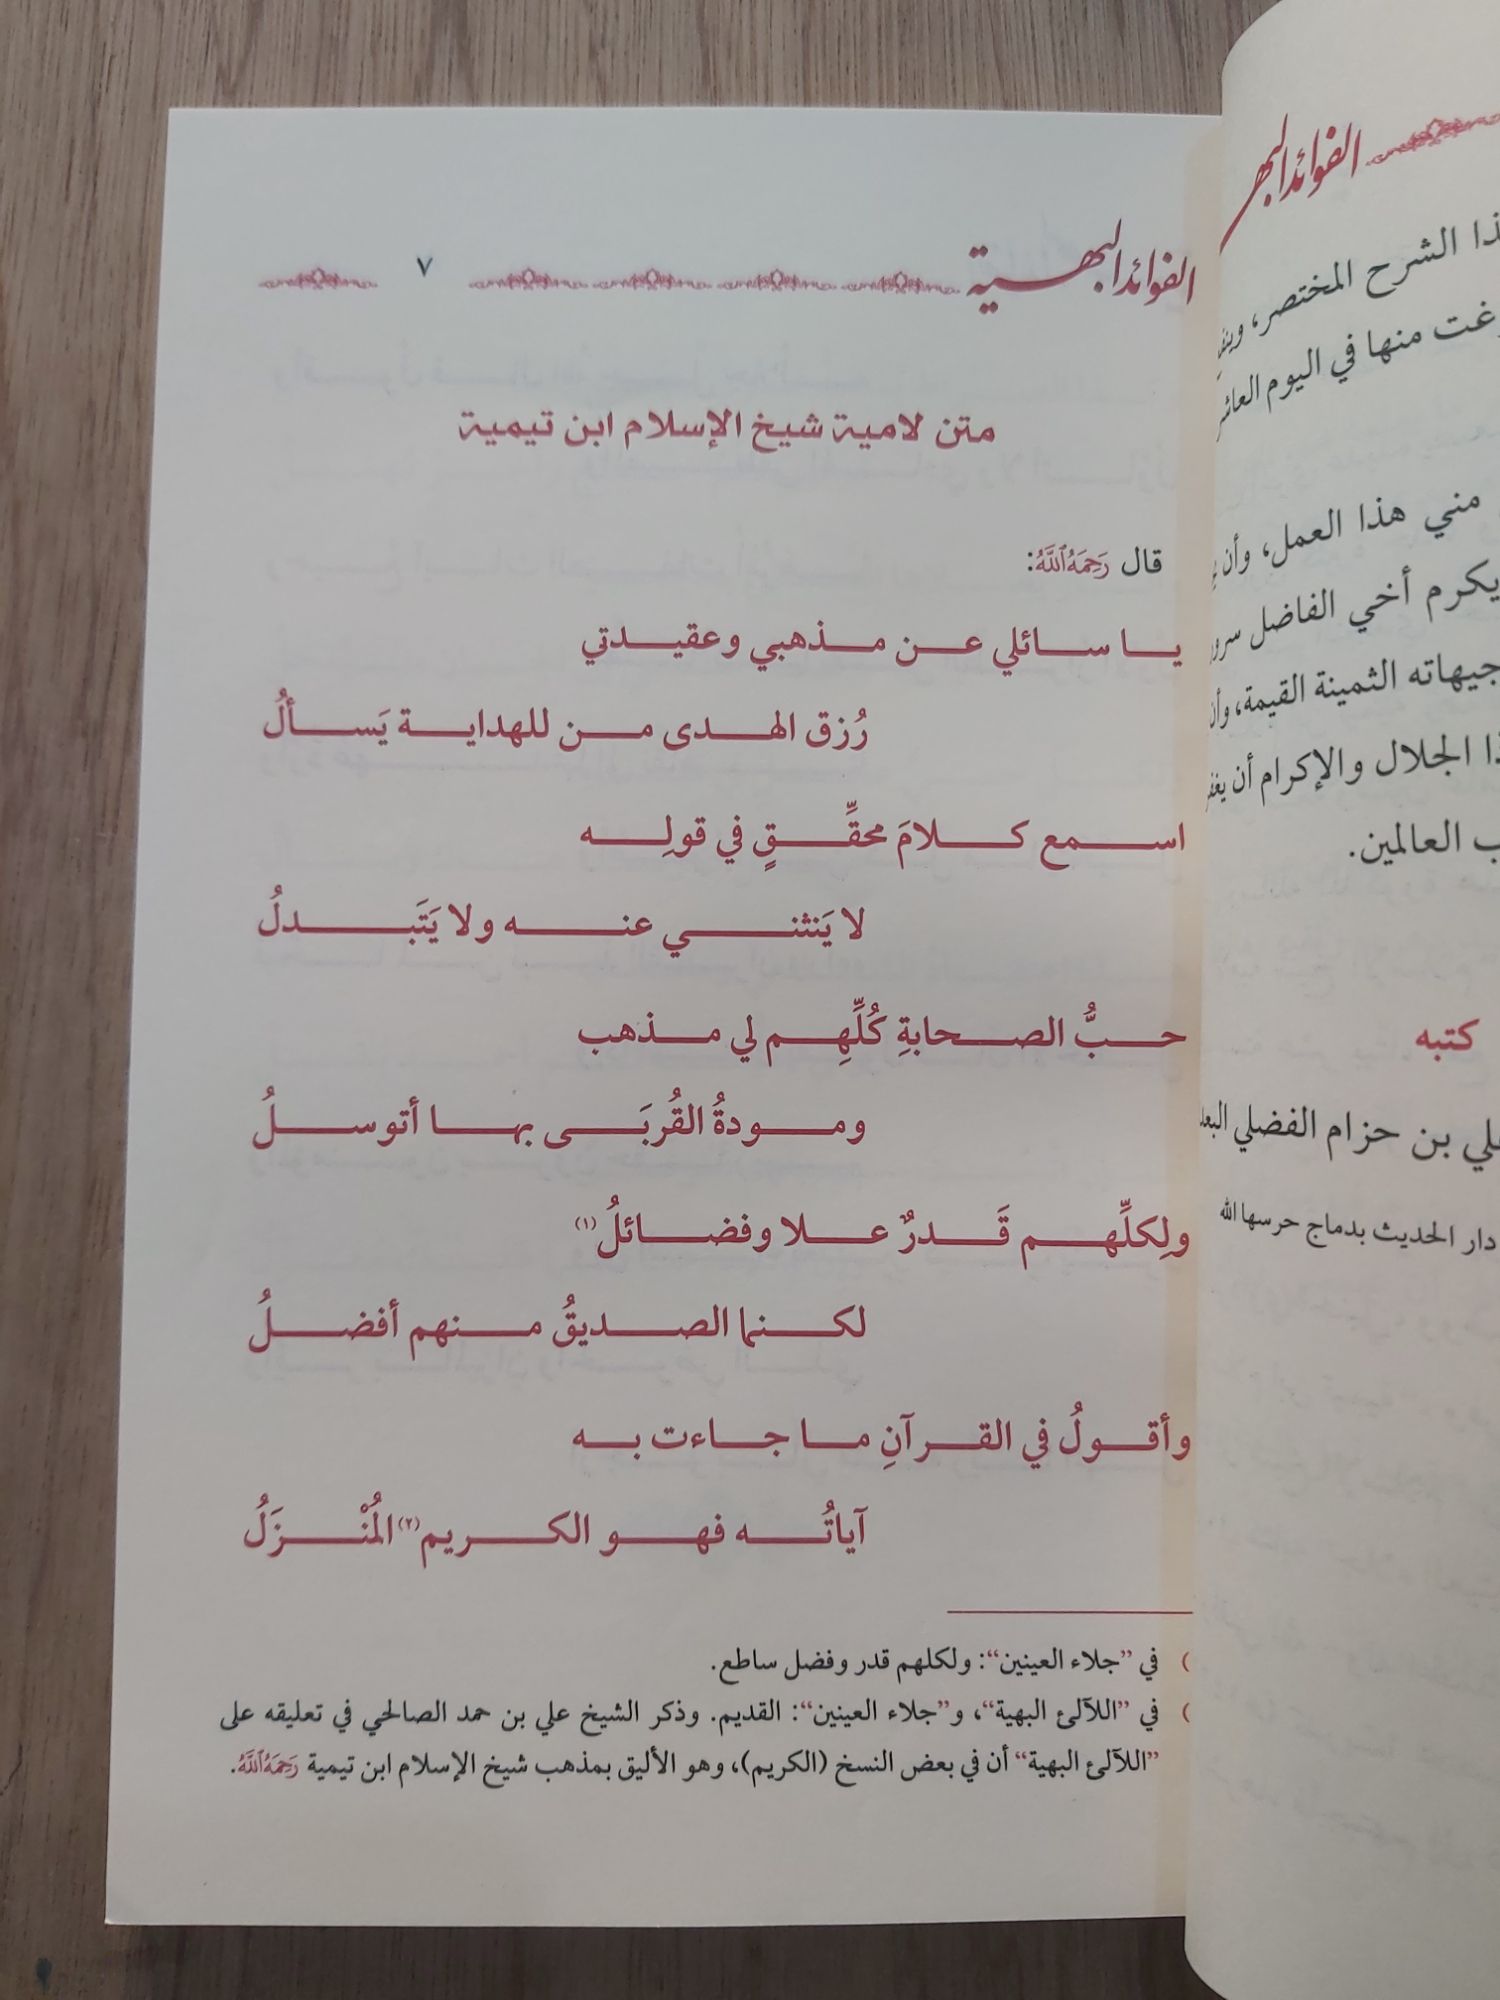 الفوائد البهية ٧
متن لامية شيخ الإسلام ابن تيمية
قال رَحِمَهُ ٱللَّهُ:
يا سائلي عن مذهبي وعقيدتي
رُزق الهدى من للهداية يَسألُ
اسمع كلامَ محقِّقٍ في قولِه
لا يَنثني عنه ولا يَتَبدلُ
حبُّ الصحابةِ كُلِّهِم لي مذهب
ومودةُ القُربَى بها أتوسلُ
ولِكلِّهم قَدرٌ علا وفضائلُ(١)
لكنما الصديقُ منهم أفضلُ
وأقولُ في القرآنِ ما جاءت به
آياتُه فهو الكريم(٢) المُنْزَلُ
) في ”جلاء العينين“: ولكلهم قدر وفضل ساطع.
) في ”اللآلئ البهية“، و”جلاء العينين“: القديم. وذكر الشيخ علي بن حمد الصالحي في تعليقه على
”اللآلئ البهية“ أن في بعض النسخ (الكريم)، وهو الأليق بمذهب شيخ الإسلام ابن تيمية رَحِمَهُ ٱللَّهُ.
الفوائد البه
الشرح المختصر، وينف
منها في اليوم العاشر
مني هذا العمل، وأن
يكرم أخي الفاضل
جيهاته الثمينة القيمة، وأن
ذا الجلال والإكرام أن يغفر
ب العالمين.
كتبه
لي بن حزام الفضلي البعد
دار الحديث بدماج حرسها الله